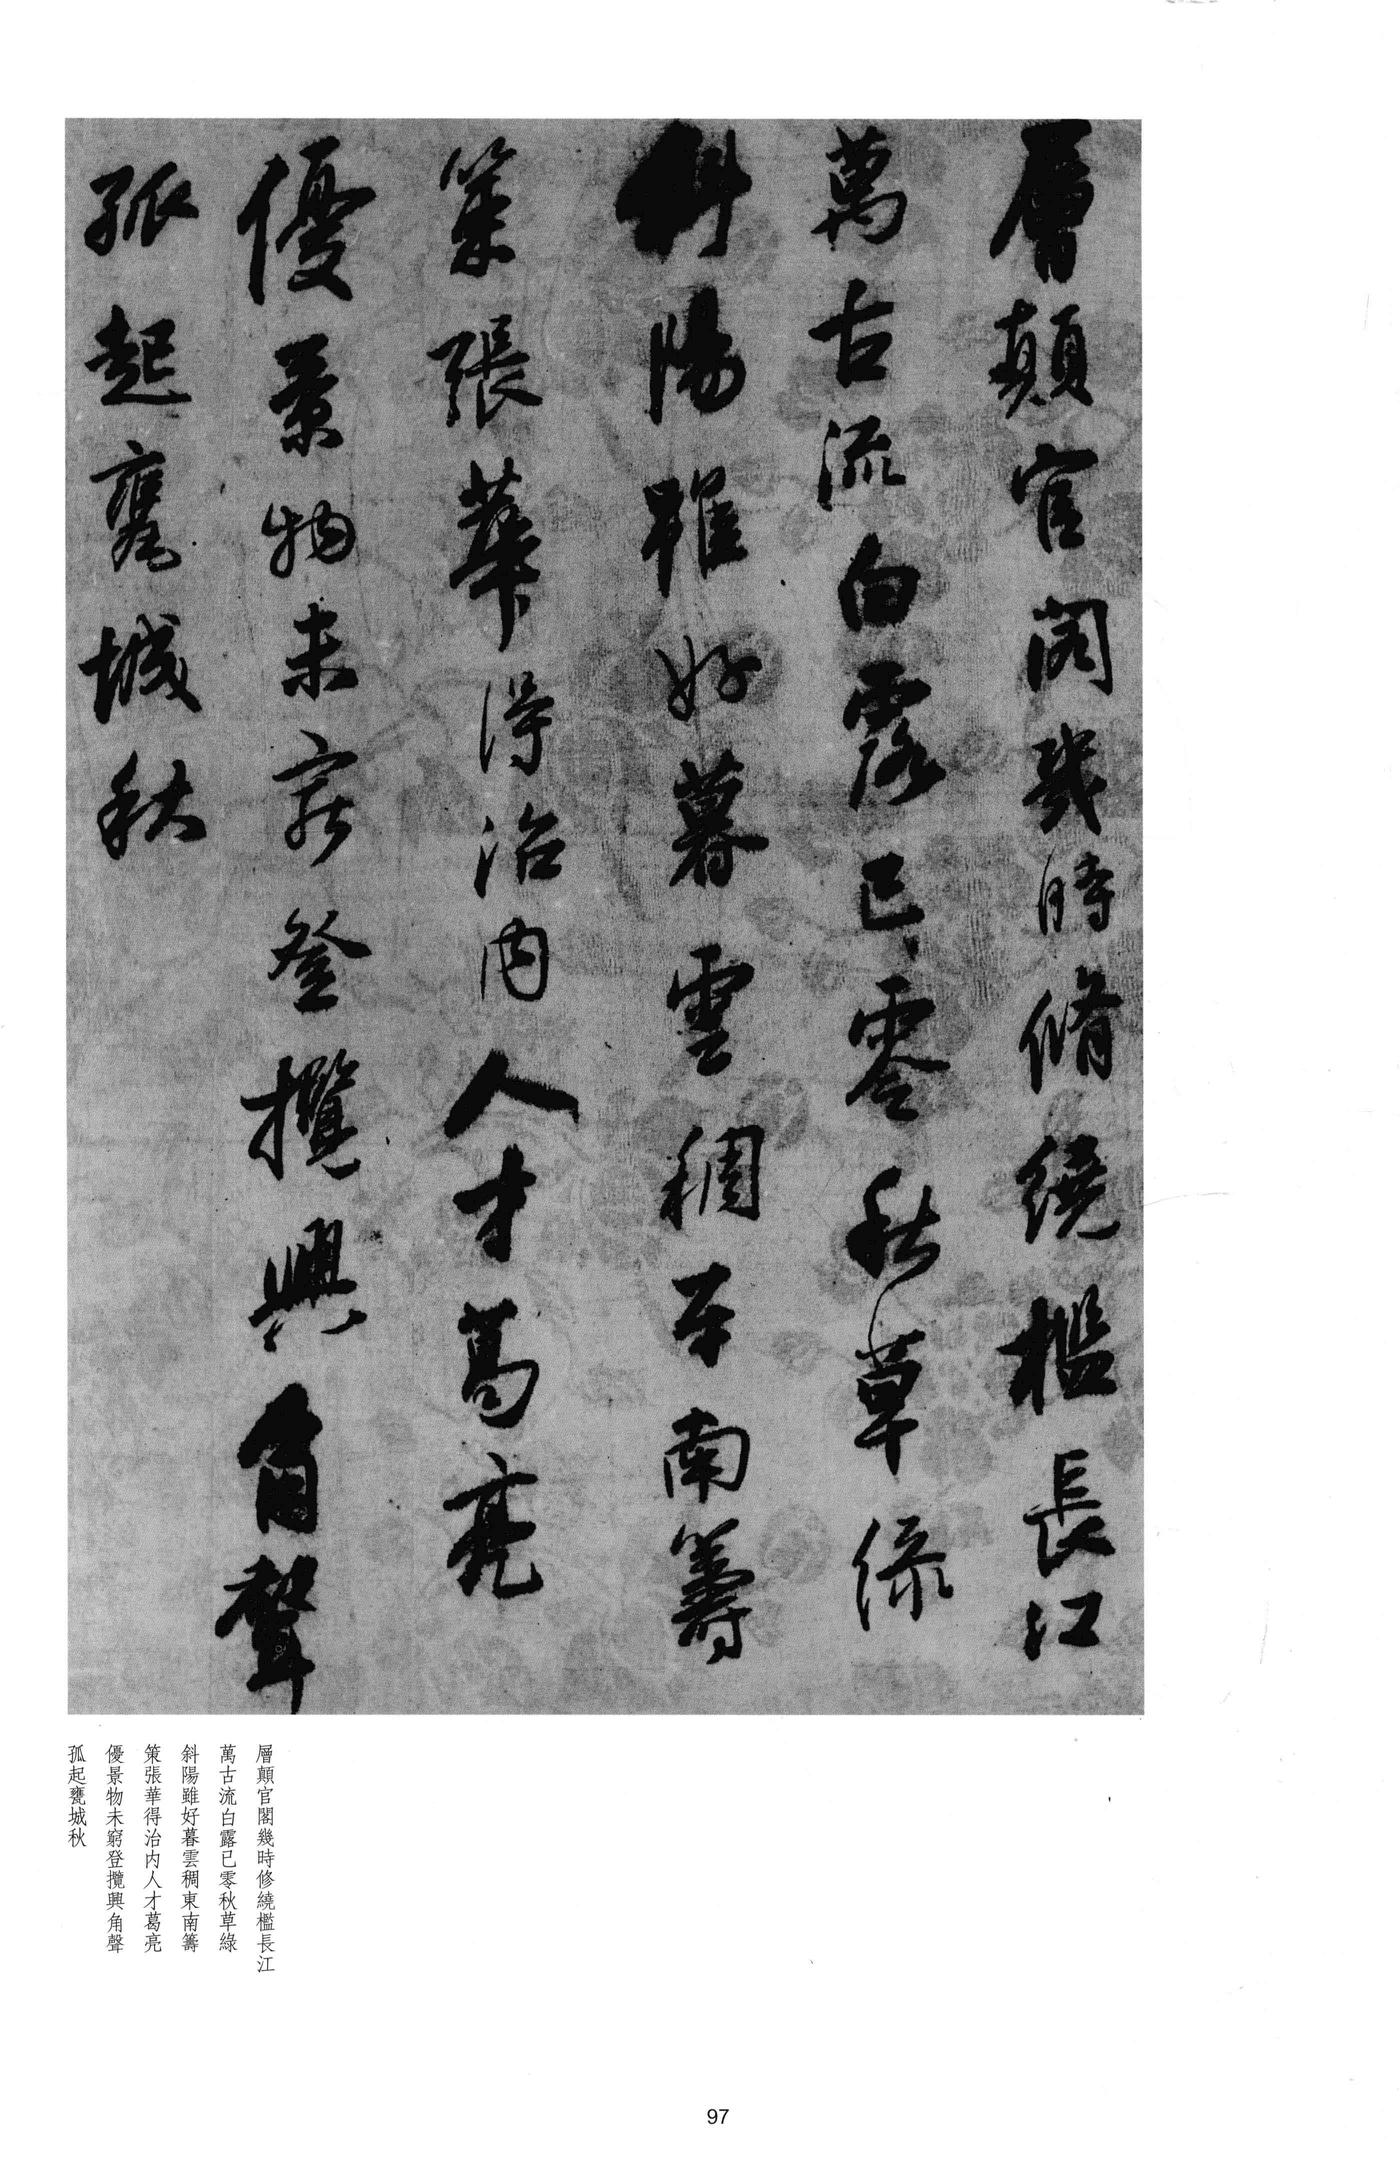 層顛官閣幾時修繞檻長江
萬古流白露已零秋草綠
斜陽雖好暮雲稠東南籌
策張華得治內人才葛亮
優景物未窮登攬興角聲
孤起甕城秋
層顛官閣幾時修繞檻長江
萬古流白露已零秋草綠
斜陽雖好暮雲稠東南籌
策張華得治內人才葛亮
優景物未窮登攬興角聲
孤起甕城秋
97